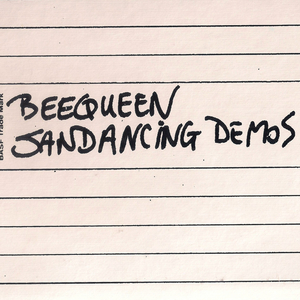 BEEQUEEN
SANDANCING DEMOS
BASF Trade Mark